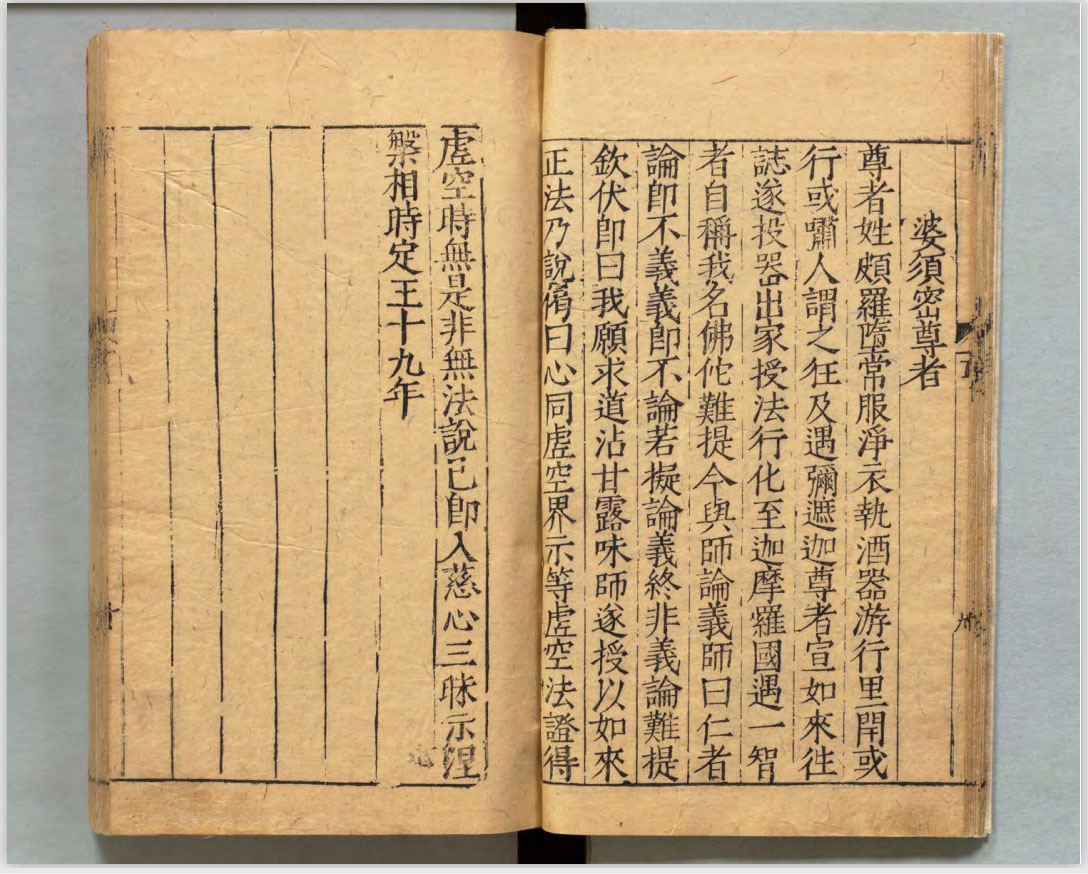 婆須密尊者
尊者姓頗羅墮常服淨衣執酒器游行里閈或
行或嘯人謂之狂及遇彌遮迦尊者宣如來往
誌遂投器出家授法行化至迦摩羅國遇一智
者自稱我名佛佗難提今與師論義師曰仁者
論卽不義義卽不論若擬論義終非義論難提
欽伏卽曰我願求道沾甘露味師遂授以如來
正法乃說偈曰心同虛空界示等虛空法證得
虛空時無是非無法說已卽入慈心三昧示涅
槃相時定王十九年